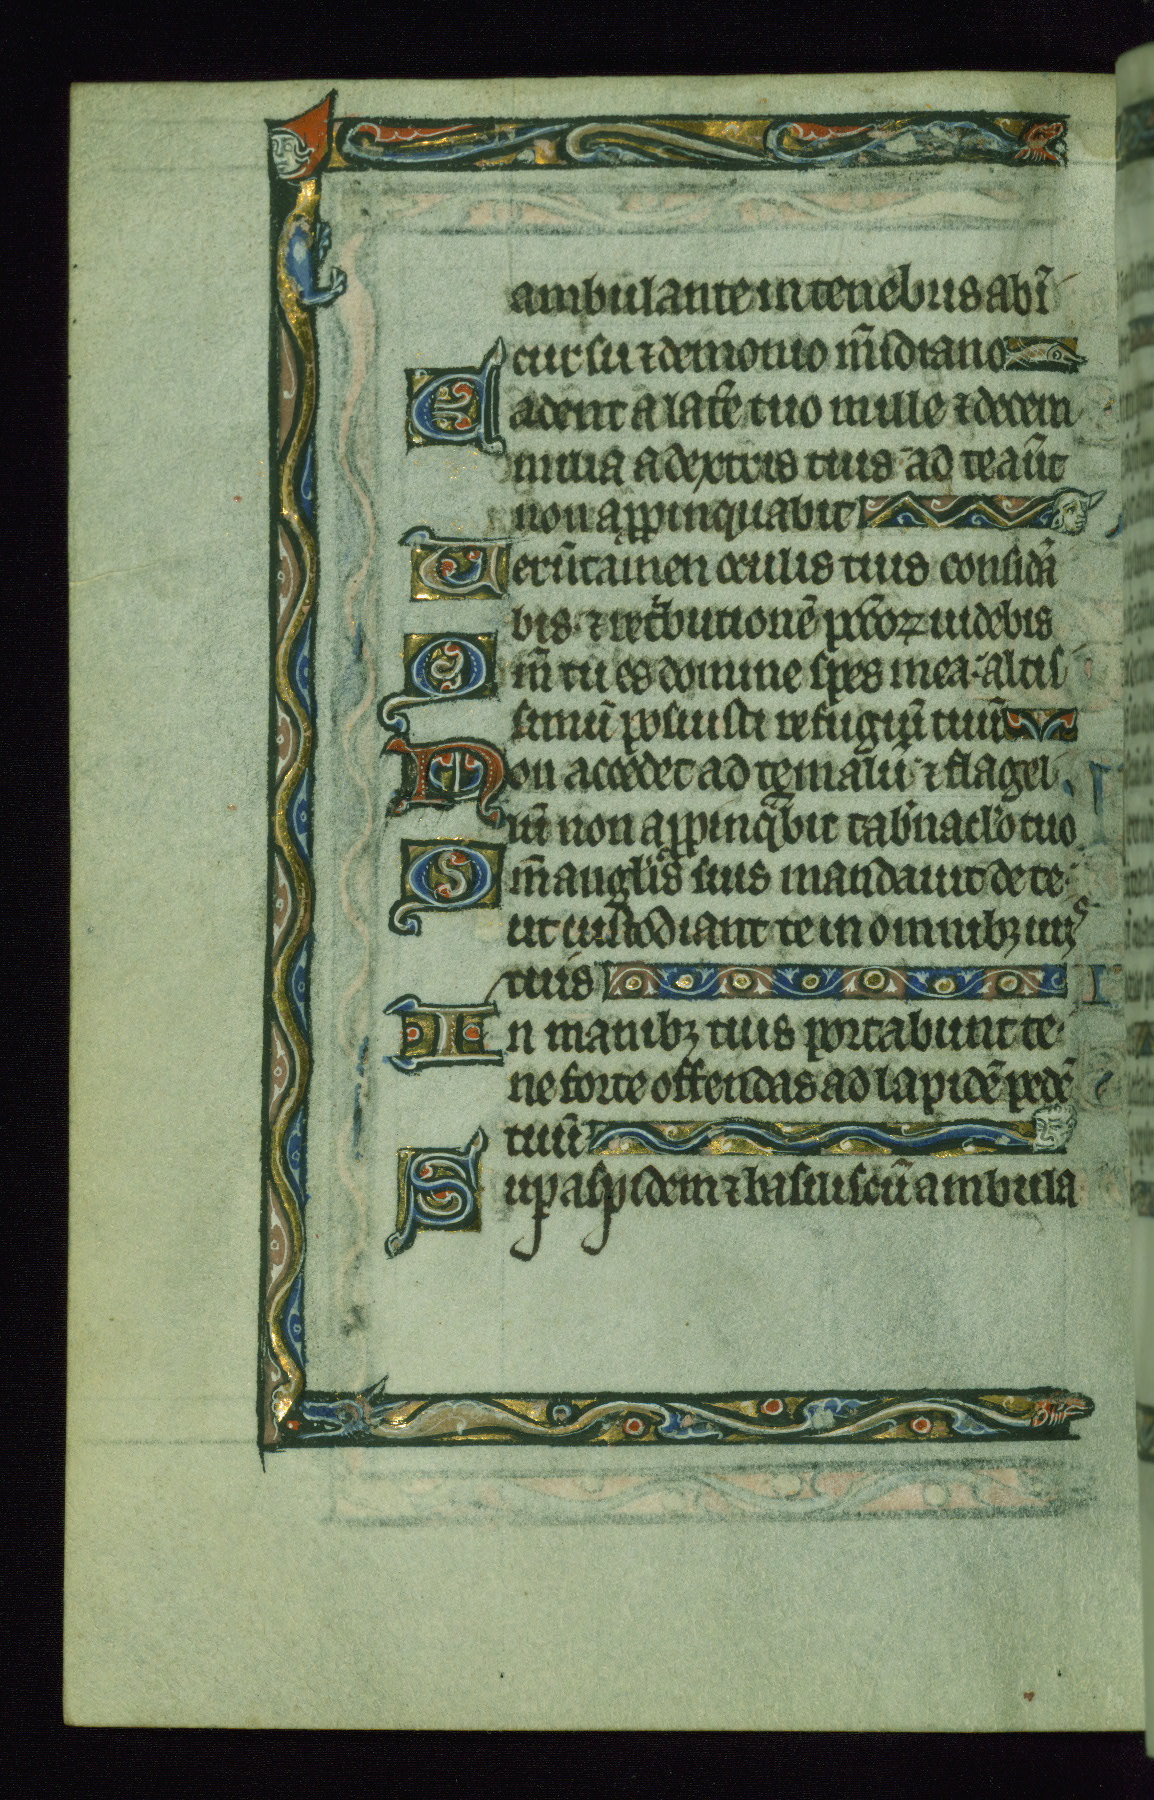 ambulante in tenebris ab ī
cursu ⁊ demonio m̄idiano
Cadent a laťe tuo mille ⁊ decem
milia a dextris tuis ad te aūt
non appinquabit
Uerūtamen oculis tuis consid̄a
bis ⁊ ret̾butionē pccōꝝ uidebis
Qm̄ tu es domine spes mea altis
simū posuisti refugiū tuū
Non accedet ad te malū ⁊ flagel
lū non appinq̾bit tab̾nac̾lo tuo
Qm̄ angl̾is suis mandauit de te
ut custodiant te in omnibꝫ uijs
tuis
In manibꝫ tuis portabunt te
ne forte offendas ad lapidē pedē
tuū
Sup aspidem ⁊ basiliscū ambula